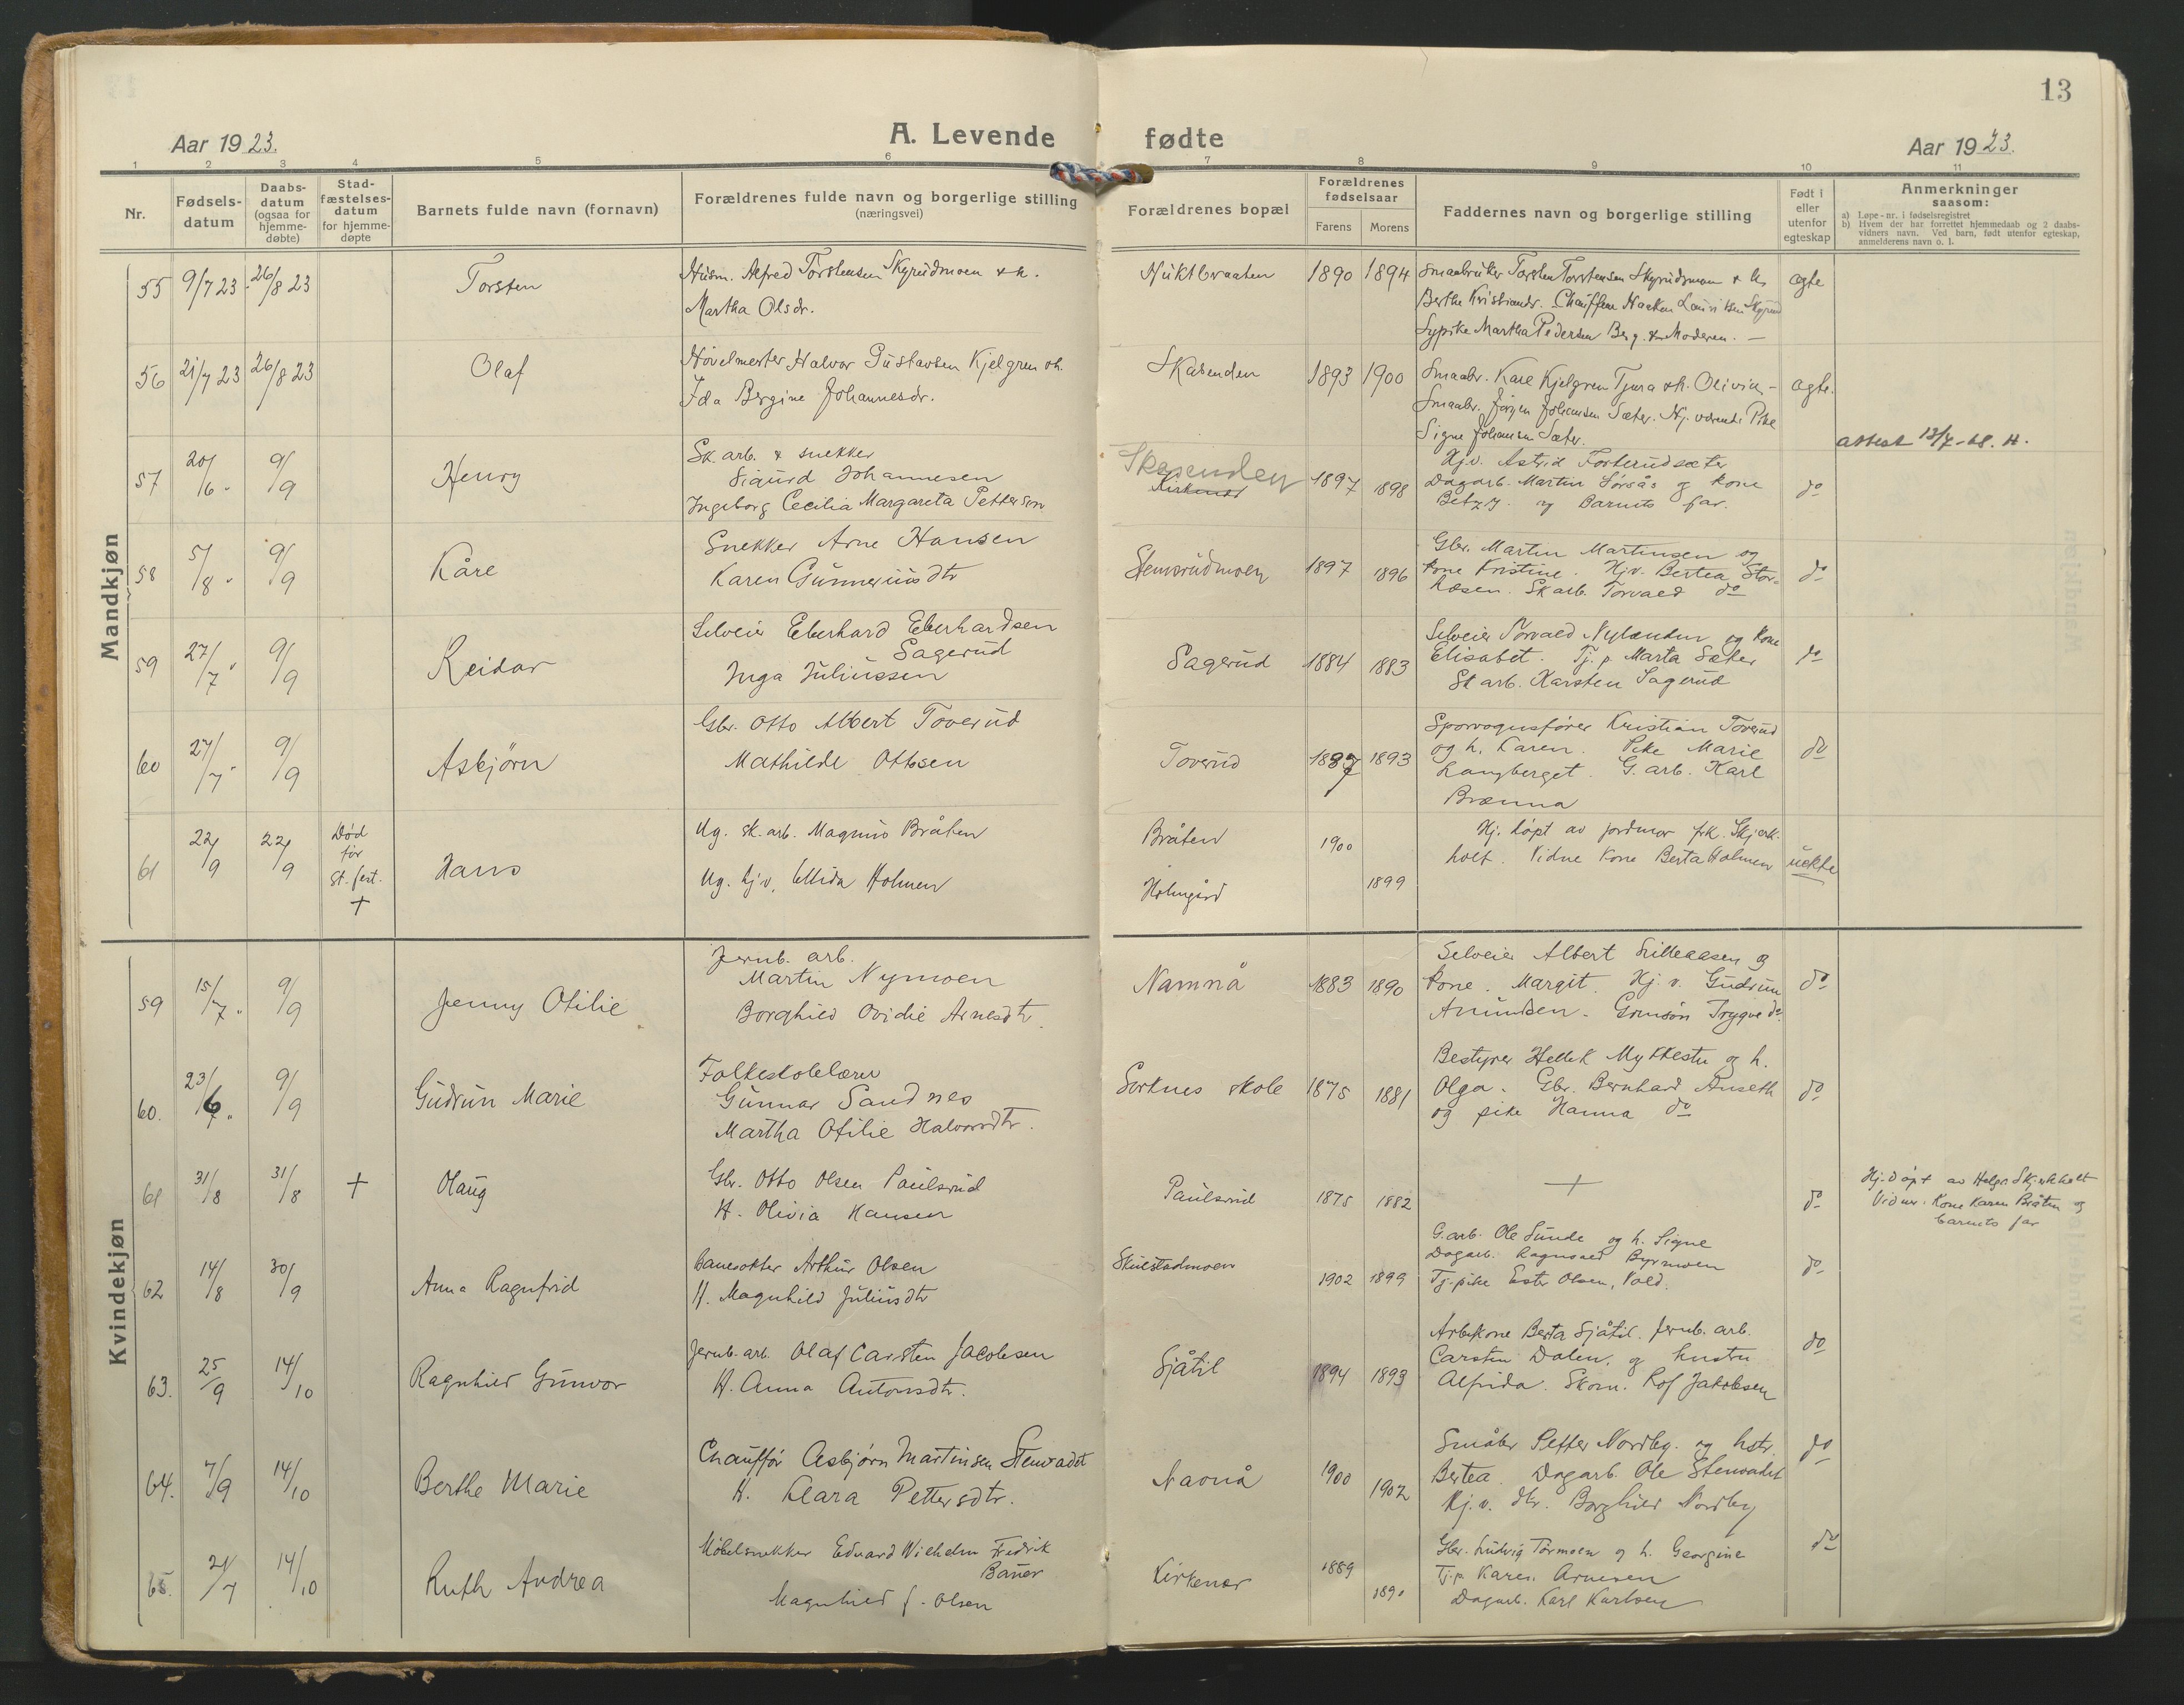 13
Aar 1923.
A. Levende fødte
Aar 1923.
1 2 3 4 5 6 7 8 9 10 11
Nr.
Fødsels-
datum
Daabs-
datum
(ogsaa for
hjemme-
døbte)
Stad-
fæstelses-
datum
for hjemme-
døpte
Barnets fulde navn (fornavn)
Forældrenes fulde navn og borgerlige stilling
(næringsvei)
Forældrenes bopæl
Forældrenes
fødselsaar
Farens Morens
Faddernes navn og borgerlige stilling
Født i
eller
utenfor
egteskap
Anmerkninger
saasom:
a) Løpe-nr. i fødselsregistret
b) Hvem der har forrettet hjemmedaab og 2 daabs-
vidners navn. Ved barn, født utenfor egteskap,
anmelderens navn o. l.
Mandkjøn
55 9/7 23 26/8 23
Torsten
Husm. Alfred Torstensen Skyrudmoen & h.
Martha Olsdr.
1890 1894
Smaabruker Torsten Torstensen Skyrudsmoen & h.
Berthe Kristiansdr. Chauffeur Haaken
Sypike Martha Pedersen Berg. & Moderen. —
ægte
56 21/7 23 26/8 23
Olaf
Høvelmester Halvor Gustavsen Kjelgren & h.
Ida Bergine Johannesdr.
Skasenden
1893 1900
Smaabr. Karl Kjelgren Tjura & h. Olivia —
Smaabr. Jørgen Johansen Sæter. Hj. værende Pike
Signe Johansen Sæter.
ægte.
57 20/6 " 9/9
Henry
Sk. arb. & snekker
Sigurd Johannesen
Ingeborg Cecilia Margareta Pettersen
Skasenden
Kirkenær
1897 1898
Hj.v. Astrid Forterudsæter
Dagarb. Martin Sørsås og kone
Betzy. og Barnets far.
do
attest 13/7-48. H.
58 5/8 " 9/9
Kåre
Snekker Arne Hansen
Karen Gunneriusdtr
Stemsrudmoen
1897 1896
Gbr. Martin Martinsen og
kone Kristine. Hj.v. Bertea Stor-
haasen. Sk arb. Torvald do
do
59 27/7 " 9/9
Reidar
Selveier Eberhard Eberhardsen
Sagerud
Inga Juliussen
Sagerud
1884 1883
Selveier Torvald Nylender og kone
Elisabet. Tj. p. Marta Sæter
Sk arb. Karsten Sagerud
do
60 27/7 " 9/9
Asbjørn
Gbr. Otto Albert Toverud
Mathilde Ottesen
Toverud
1887 1893
Sporvognsfører Kristian Toverud
og h. Karen. Pike Marie
Langberget. G. arb. Karl
Brænna
do
61 22/9 22/9
Død
før
st. fest.
+
Hans
Ug. sk. arb. Magnus Bråten
Ug. hj.v. Ellida Holmen
Bråten
Holmgård
1900
1899
Hj. døpt av jordmor frk. Skjerk-
holt. Vidne kone Berta Holmen
uekte
Kvindekjøn
59 15/7 " 9/9
Jenny Otilie
Jernb. arb.
Martin Nymoen
Borghild Ovidie Arnesdtr.
Namnå
1883 1890
Selveier Albert Lilleaasen og
kone. Margit. Hj. v. Gudrun
Amundsen. Grmsøn Trygve do
do
60. 23/6 " 9/9
Gudrun Marie
Folkeskolelærer
Gunnar Sandnes
Martha Otilie Halvorsdtr.
Sorknes skole
1875 1881
Bestyrer Hellek Mykkestu og h.
Olga. Gbr. Bernhard Auseth
og pike Hanna do
do
61 31/8 31/8 +
Olaug
Gbr. Otto Olsen Paulsrud
H. Olivia Hansen
Paulsrud
1875 1882
+
do
Hj. døpt av Helga Skjerkholt
Vidner: Kone Karen Bråten og
barnets far
62 14/8 30/9
Anna Ragnfrid
Banevokter Arthur Olsen
H. Magnhild Juliusdtr
Skulstadmoen
1902 1899
G. arb. Ole Sunde og h. Signe
Dagarb. Ragnvald Byrmoen
Tj. pike Ester Olsen, Vold.
do
63. 25/9 14/10
Ragnhild Gunvor
Jernb. arb. Olaf Carsten Jacobsen
H. Anna Antonsdtr.
Sjåtil
1894 1893
Arb.kone Berta Sjåtil. Jernb. arb.
Carsten Dalen, og hustru
Alfrida. Skom. Rolf Jakobsen
do
64. 7/9 14/10
Berthe Marie
Chauffør Asbjørn Martinsen Stenvadet
H. Klara Pettersdtr.
1900 1902
Småbr Petter Nordby. og hstr.
Bertea. Dagarb. Ole Stenvadet
Hj. v. dtr. Borghild Nordby
do
65. 21/7 14/10
Ruth Andrea
Møbelsnekker Edvard Vilhelm Fredrik
Bauer
Magnhild f. Olsen
Kirkenær
1889
1890
Gbr. Ludvig Tormoen og h. Georgine
Tj. p. Karen Arnesen
Dagarb. Karl Karlsen
do